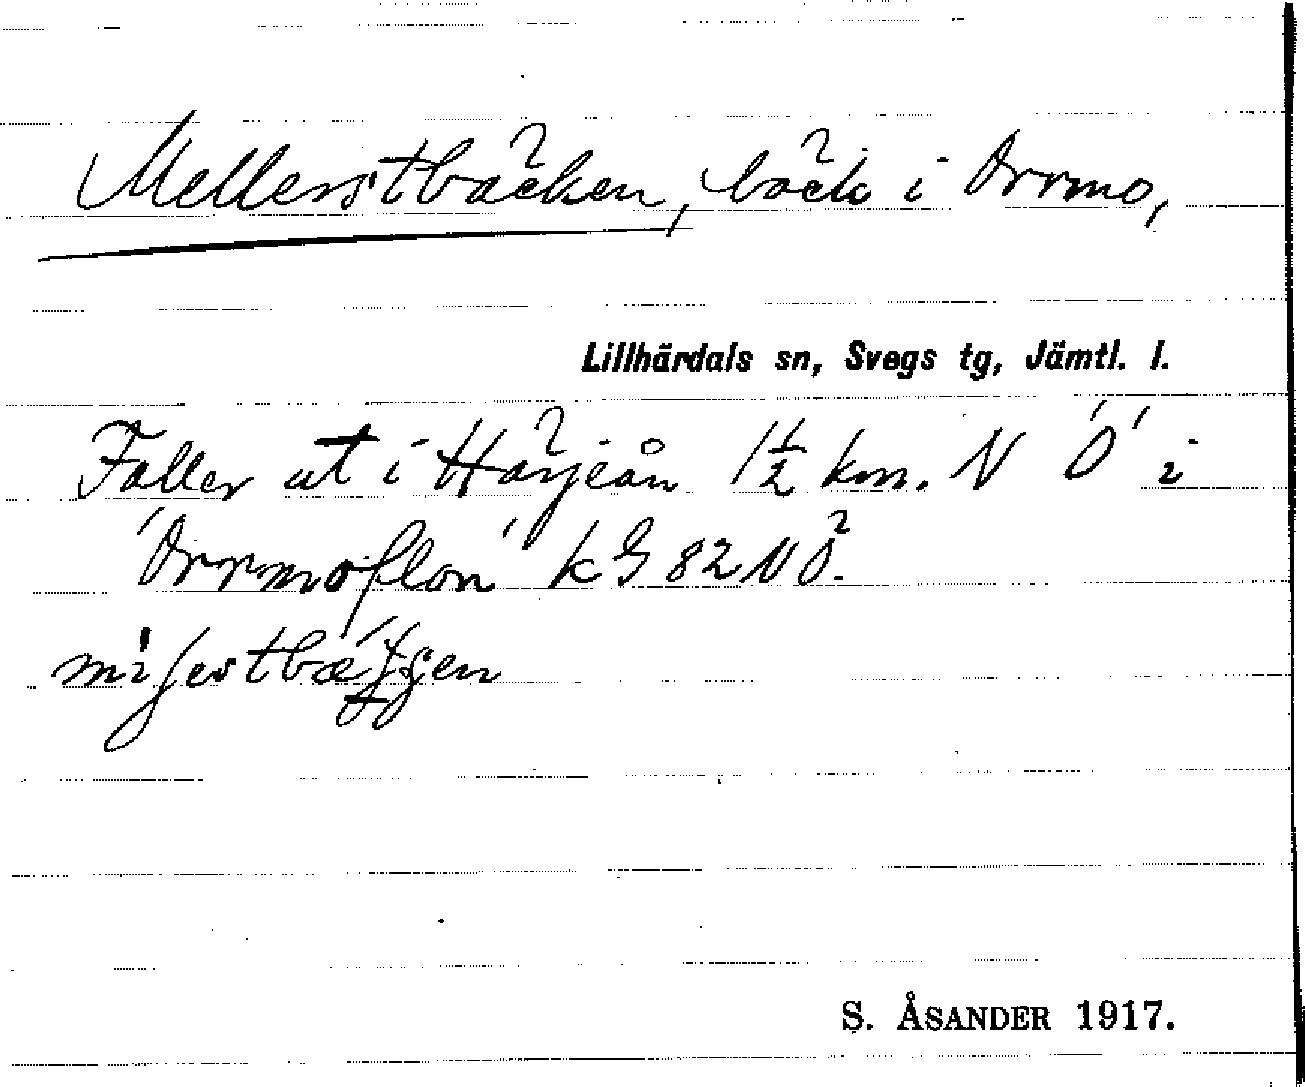 Mellerstbäcken, bäck i Orrmo,
Lillhärdals sn, Svegs tg, Jämtl. l.
Faller ut i Härjeån 1½ km. N Ö i
Orrmoflon k G 82 NÖ.
S. ÅSANDER 1917.